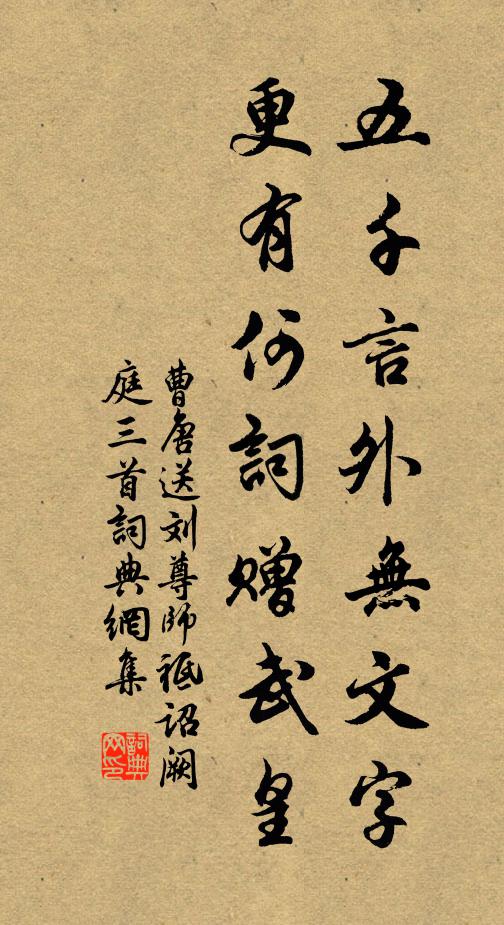 五千言外無文字
更有何詞贈武皇
曹唐送刘尊師祗詔闕
庭三首詞典網集
詞典
网印